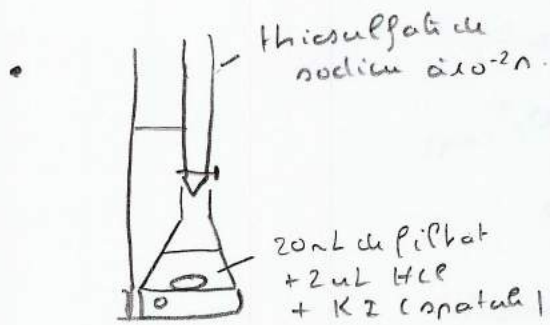 thiosulfate de
sodium à 10⁻² M.
20 mL de filtrat
+ 2 mL HCl
+ KI (spatule)